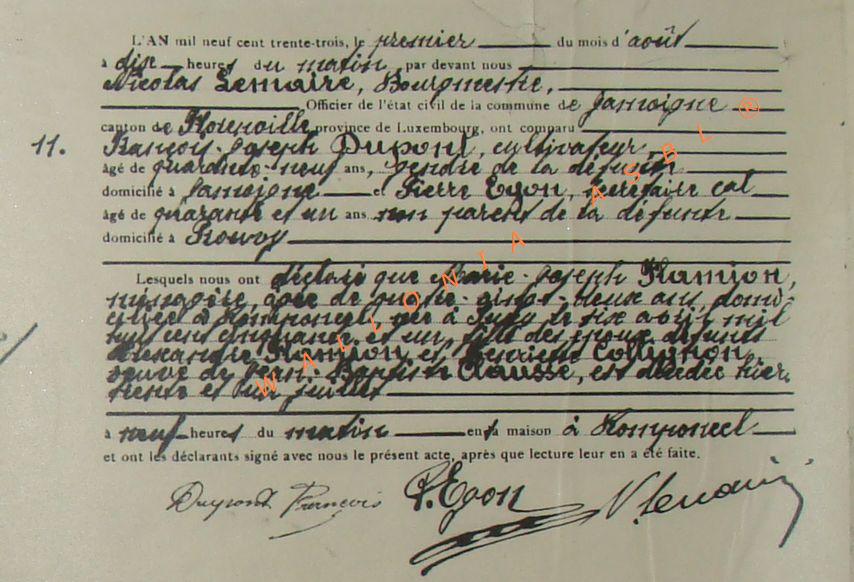 L'AN mil neuf cent trente-trois, le premier du mois d'août
à dix heures du matin, par devant nous
Nicolas Lemaire, Bourgmestre,
Officier de l'état civil de la commune de Jamoigne
canton de Florenville province de Luxembourg, ont comparu
11. François-Joseph Dupont, cultivateur,
âgé de quarante-neuf ans, gendre de la défunte
domicilié à Jamoigne et Pierre Egon, secrétaire cal
âgé de quarante et un ans non parent de la défunte
domicilié à
Lesquels nous ont déclaré que Marie-Joseph Hamion,
ménagère, âgée de quatre-vingt-deux ans, domi-
ciliée à Romponcel, née à le six août mil
huit cent cinquante et un, fille des époux défunts
Alexandre Hamion et Collignon,
veuve de Jean-Baptiste Clausse, est décédée hier
trente et un juillet
à neuf heures du matin en sa maison à Romponcel
et ont les déclarants signé avec nous le présent acte, après que lecture leur en a été faite.
Dupont François P. Egon N Lemaire
WALLONIA ASBL ®